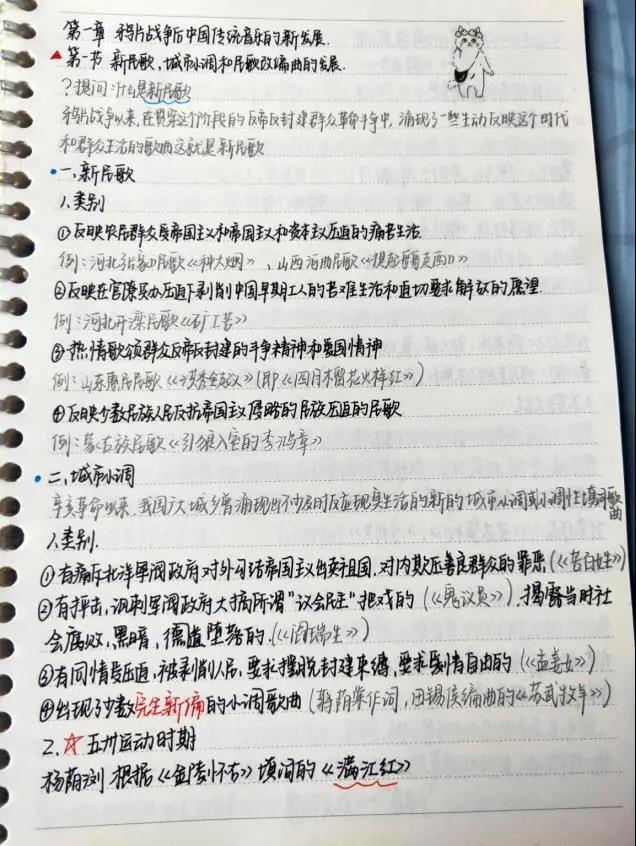 第一章 鸦片战争后中国传统音乐的新发展.
第一节 新民歌、城市小调和民歌改编曲的发展.
?提问:什么是新民歌
鸦片战争以来,在贯穿这个阶段的反帝反封建群众革命斗争中,涌现了一些生动反映这个时代
和群众生活的歌曲这就是新民歌
一、新民歌
1.类别
①反映农民群众受帝国主义和帝国主义和资本主义压迫的痛苦生活
例:河北 民歌《种大烟》、山西河曲民歌《提起 》
②反映在官僚买办压迫下剥削中国早期工人的苦难生活和迫切要求解放的愿望
例:河北开滦民歌《矿工苦》
③热情歌颂群众反帝反封建的斗争精神和爱国情神
例:山东惠民民歌《洪秀全起义》(即《四月榴花火样红》)
④反映少数民族人民反抗帝国主义侵略的民族压迫的民歌
例:蒙古族民歌《引狼入室的李鸿章》
二、城市小调
辛亥革命以来,我国广大城乡曾涌现出不少及时反应现实生活的新的城市小调或小调性填词歌
曲
1.类别.
①有痛斥北洋军阀政府对外勾结帝国主义出卖祖国.对内欺压善良群众的罪恶(《苦百姓》)
②有抨击,讽刺军阀政府大搞所谓"议会民主"把戏的(《鬼议员》).揭露当时社
会腐败,黑暗,德道堕落的.(《阎瑞生》)
③有同情受压迫,被剥削人民,要求摆脱封建束缚,要求爱情自由的(《孟姜女》)
④出现了少数完全新编的小调歌曲(蒋荫棠作词,田锡侯编曲的《苏武牧羊》)
2.☆五卅运动时期
杨荫浏根据《金陵怀古》填词的《满江红》